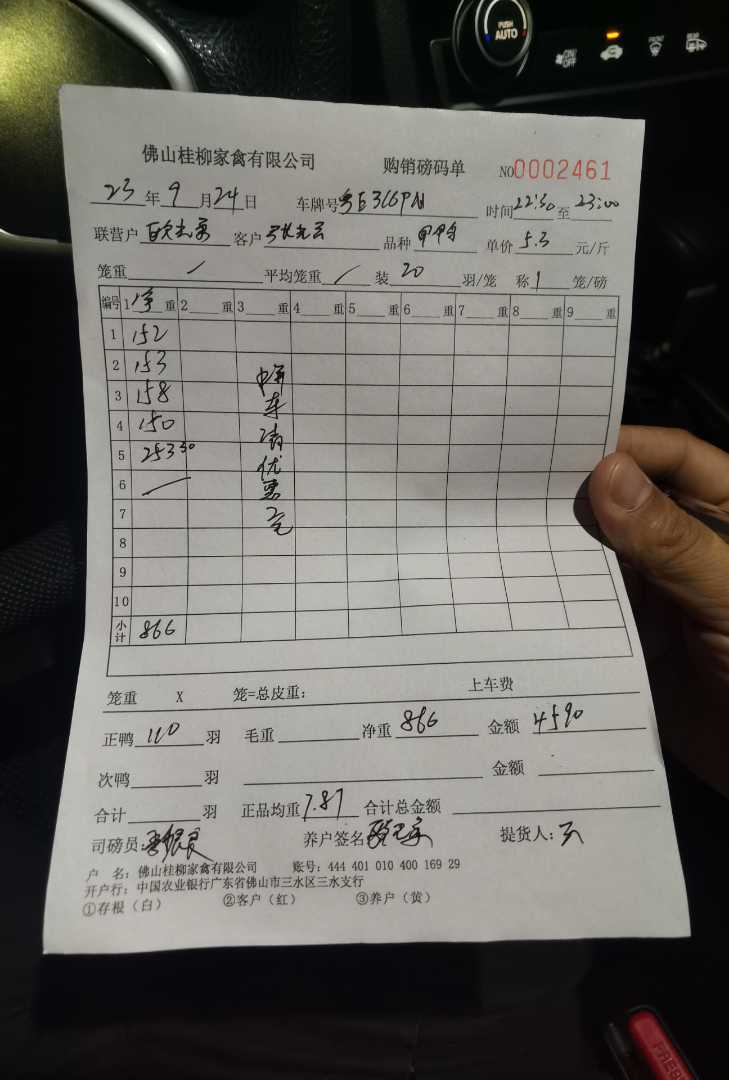 佛山桂柳家禽有限公司 购销磅码单 NO0002461
23年9月24日 车牌号粤E366PN 时间22:30至23:00
联营户 客户 品种 单价5.3元/斤
笼重/ 平均笼重/ 装20羽/笼 称1笼/磅
编号 1净重 2重 3重 4重 5重 6重 7重 8重 9重
1 152
2 153
3 158
4 150
5 253 30
6 /
7
8
9
10
车请优惠
小计 866
笼重 X 笼=总皮重: 上车费
正鸭110羽 毛重 净重866 金额4590
次鸭 羽 金额
合计 羽 正品均重7.87 合计总金额
司磅员: 养户签名 提货人:
户 名:佛山桂柳家禽有限公司 账号:444 401 010 400 169 29
开户行:中国农业银行广东省佛山市三水区三水支行
①存根(白) ②客户(红) ③养户(黄)
PUSH
AUTO
ON/
OFF
FRONT
REAR
PRESS